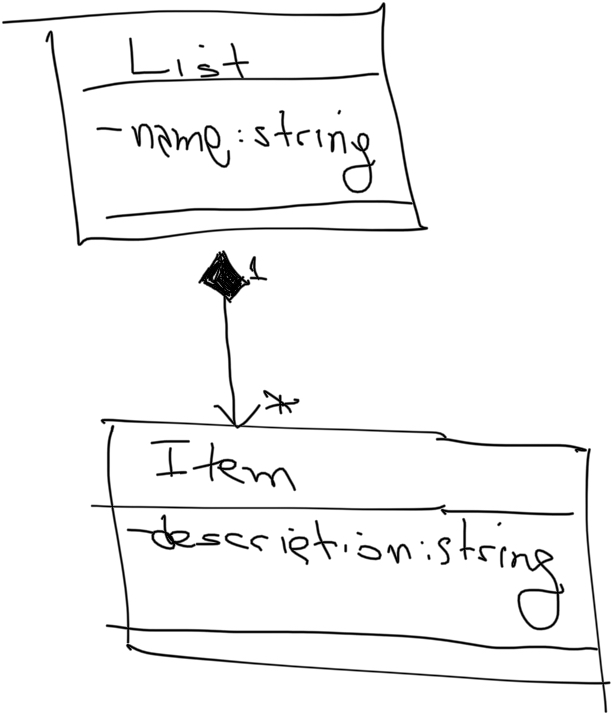 List
-name:string
1
*
Item
-description:string